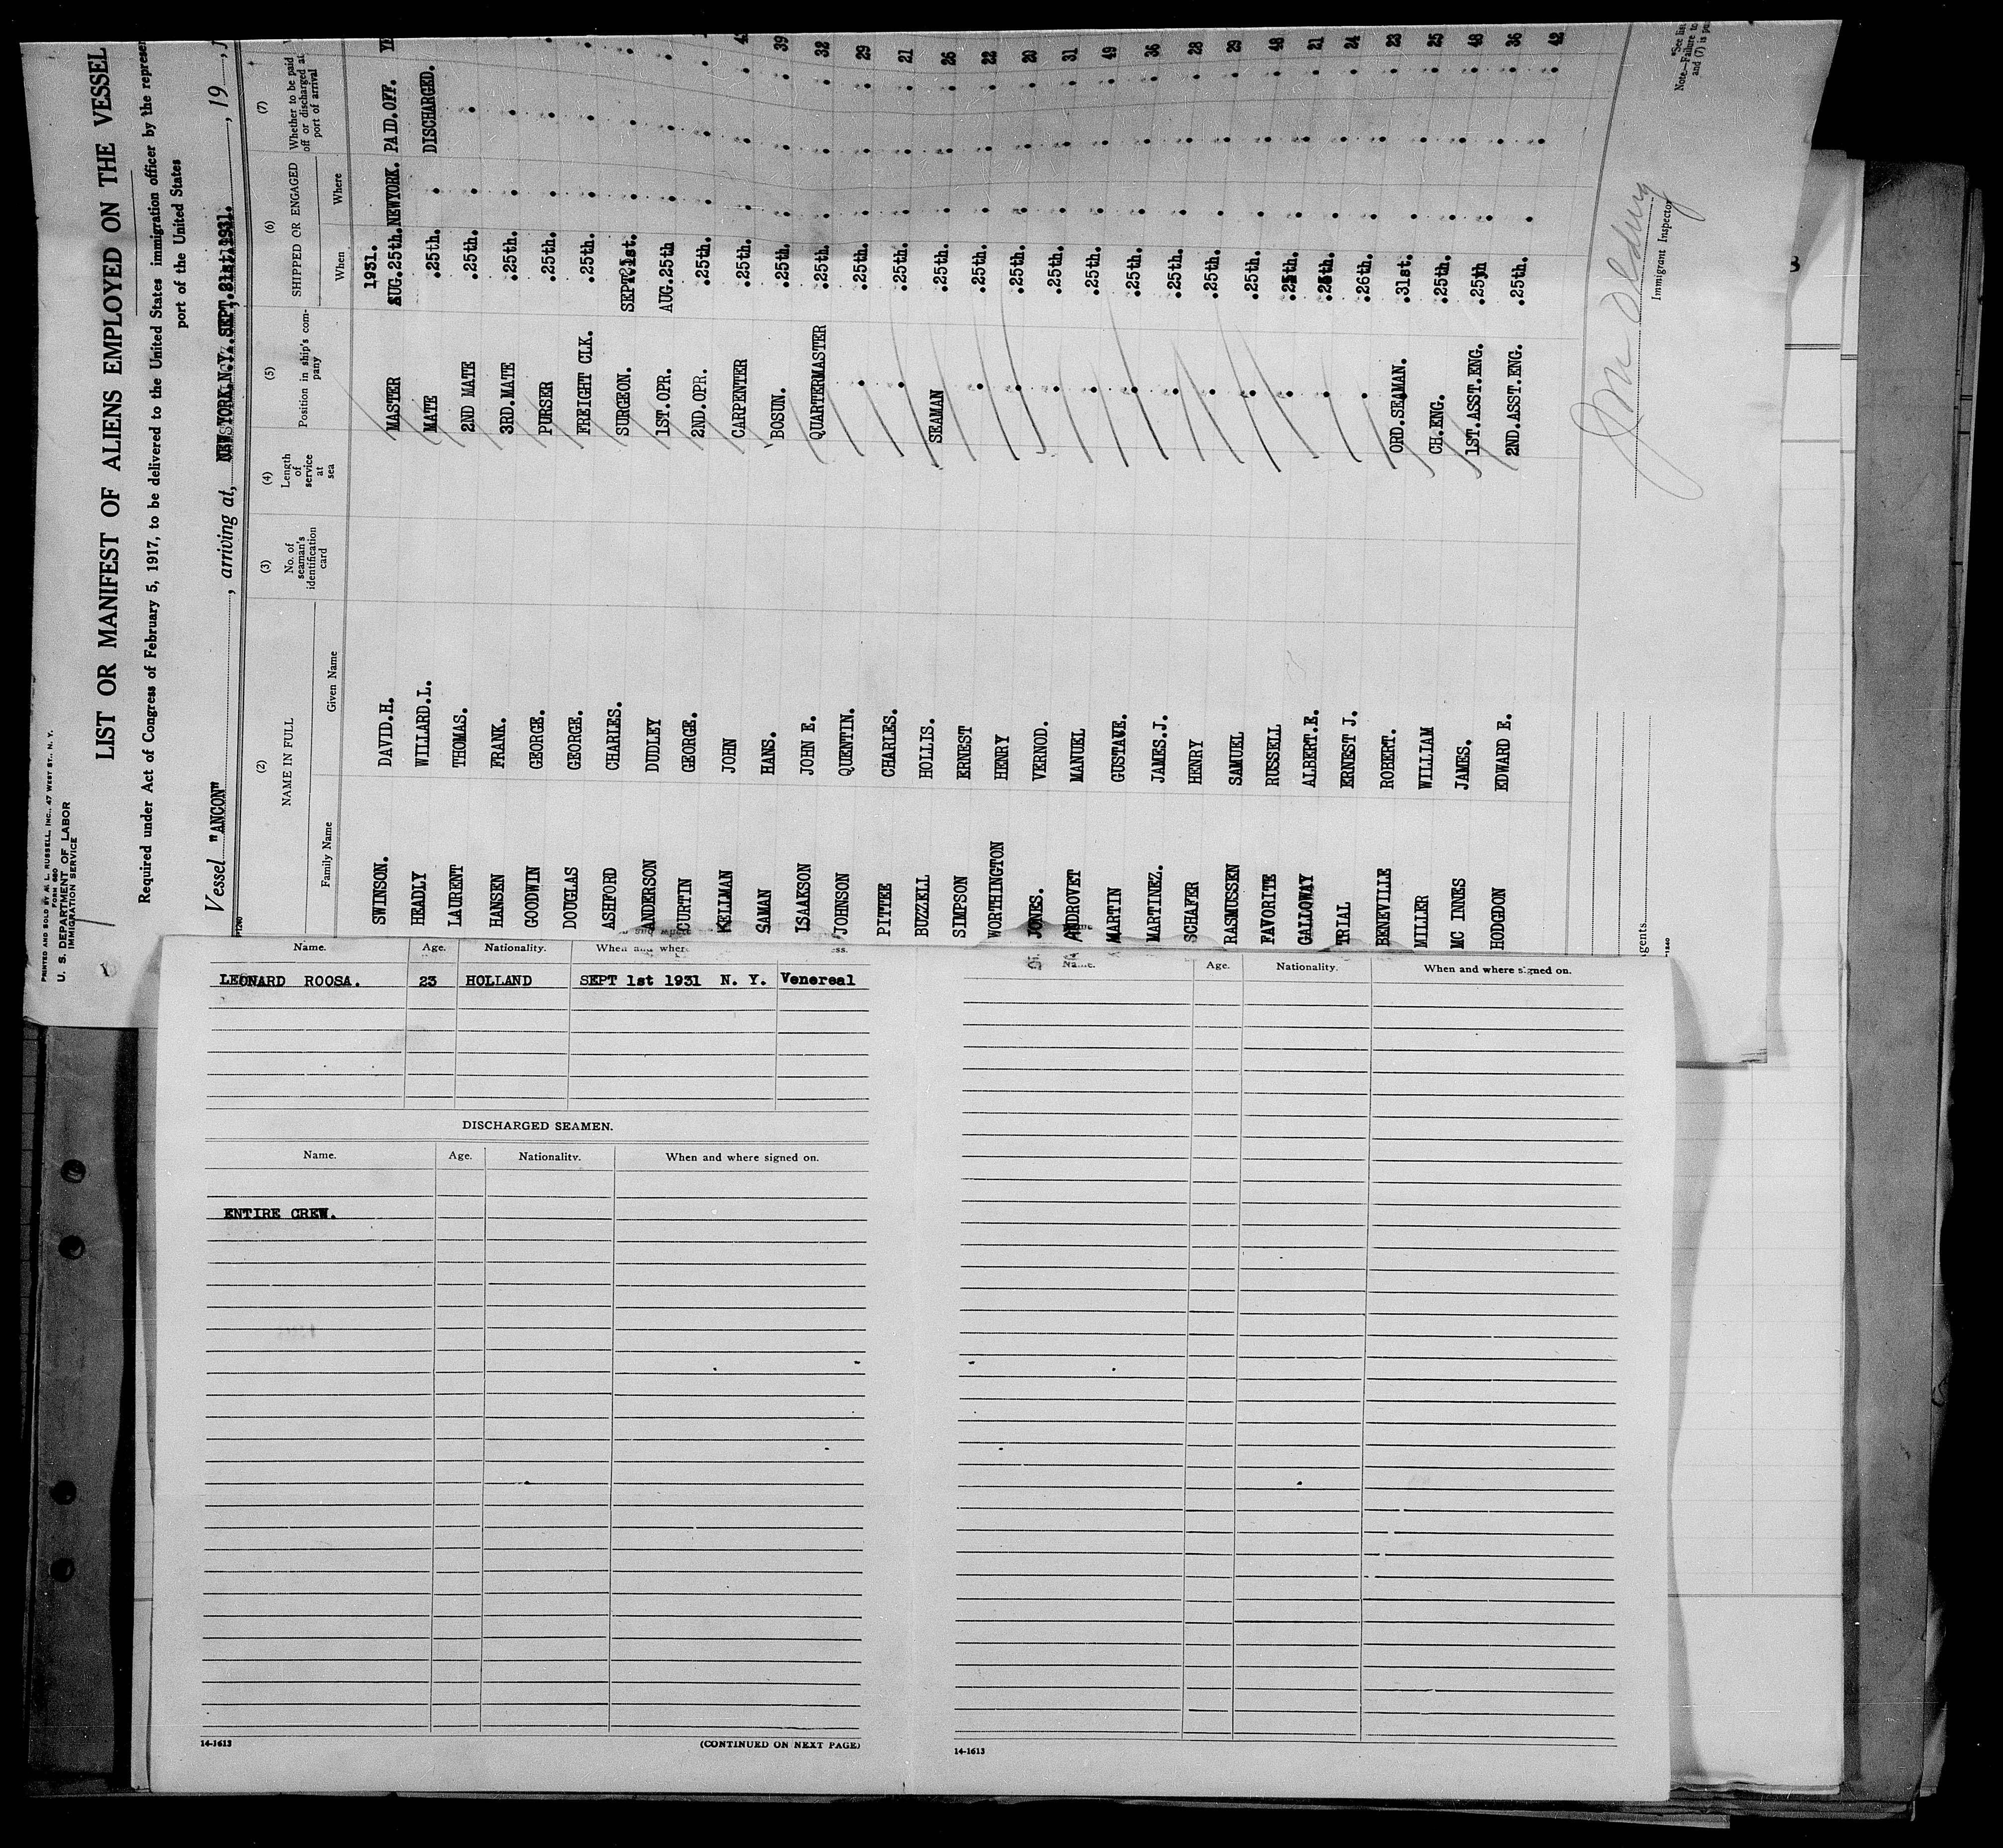 PRINTED AND SOLD BY M. L. RUSSELL, INC., 47 WEST ST., N. Y.
FORM 680
U. S. DEPARTMENT OF LABOR
IMMIGRATION SERVICE
LIST OR MANIFEST OF ALIENS EMPLOYED ON THE VESSEL
Required under Act of Congress of February 5, 1917, to be delivered to the United States immigration officer by the
port of the United States
Vessel "ANCON", arriving at, NEW YORK.N.Y. SEPT.21st.1931., 19
(2) (3) (4) (5) (6) (7)
NAME IN FULL No. of seaman's identification card Length of service at sea Position in ship's company SHIPPED OR ENGAGED Whether to be paid off or discharged at port of arrival
Family Name Given Name When Where
1931.
SWINSON. DAVID.H. MASTER AUG.25th. NEWYORK. PAID.OFF.
HEADLY WILLARD.L. MATE .25th. . DISCHARGED.
LAURENT THOMAS. 2ND MATE .25th. . .
HANSEN FRANK. 3RD.MATE .25th. . .
GOODWIN GEORGE. PURSER .25th. . .
DOUGLAS GEORGE. FREIGHT CLK. .25th. . .
ASHFORD CHARLES. SURGEON. . .
ANDERSON DUDLEY 1ST.OPR. AUG.25th . .
CURTIN GEORGE. 2ND.OPR. .25th. . .
KELLMAN JOHN CARPENTER .25th. . .
SAMAN HANS. BOSUN. .25th. . . 39
ISAAKSON JOHN E. QUARTERMASTER .25th. . . 32
JOHNSON QUENTIN. . .25th. . . 29
PITTEE CHARLES. . .25th. . . 21
BUZZELL HOLLIS. SEAMAN .25th. . . 26
SIMPSON ERNEST . .25th. . . 22
WORTHINGTON HENRY . .25th. . . 20
JONES. VERNOD. . .25th. . . 31
ANDROVET MANUEL . .25th. . . 49
MARTIN GUSTAVE. . .25th. . . 36
MARTINEZ. JAMES.J. . .25th. . . 28
SCHAFER HENRY . .25th. . . 29
RASMUSSEN SAMUEL . .25th. . . 48
FAVORITE RUSSELL . .25th. . . 21
GALLOWAY ALBERT.E. . .25th. . . 24
TRIAL ERNEST J. . .26th. . . 23
BENEVILLE ROBERT. ORD.SEAMAN. .31st. . . 25
MILLER WILLIAM CH.ENG. .25th. . . 48
MC INNES JAMES. 1ST.ASST.ENG. .25th . . 36
HODGDON EDWARD E. 2ND.ASST.ENG. .25th. . . 42
Immigrant Inspector
Note.—Failure to
and (7) is
Name. Age. Nationality. When and where
LEONARD ROOSA. 23 HOLLAND SEPT 1st 1931 N. Y. Venereal
DISCHARGED SEAMEN.
Name. Age. Nationality. When and where signed on.
ENTIRE CREW.
14-1613 (CONTINUED ON NEXT PAGE)
Name. Age. Nationality. When and where signed on.
14-1613